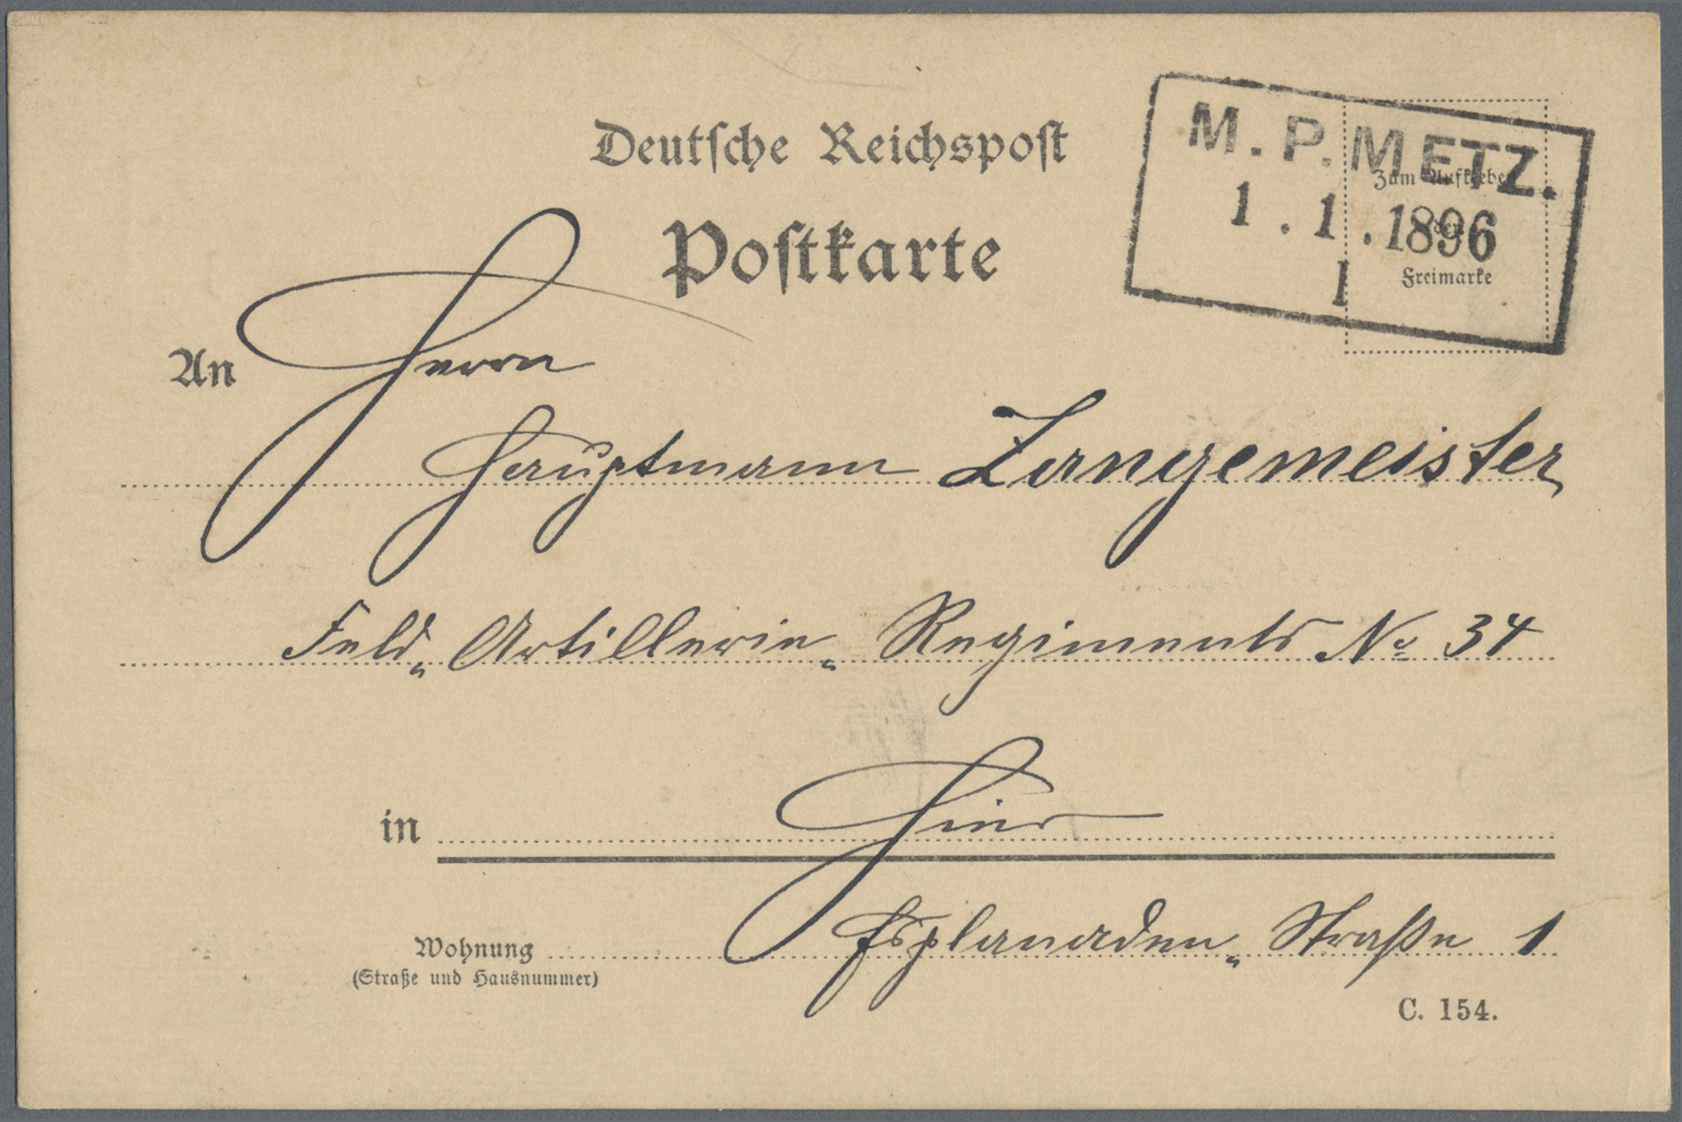 Deutsche Reichspost
Postkarte
M. P. METZ.
1 . 1 . 1896
1
Zum Aufkleben
der
Freimarke
An Herrn
Hauptmann Zangemeister
Feld„ Artillerie„ Regiments No 34
in Hier
Wohnung Esplanaden„ Straße 1
(Straße und Hausnummer)
C. 154.